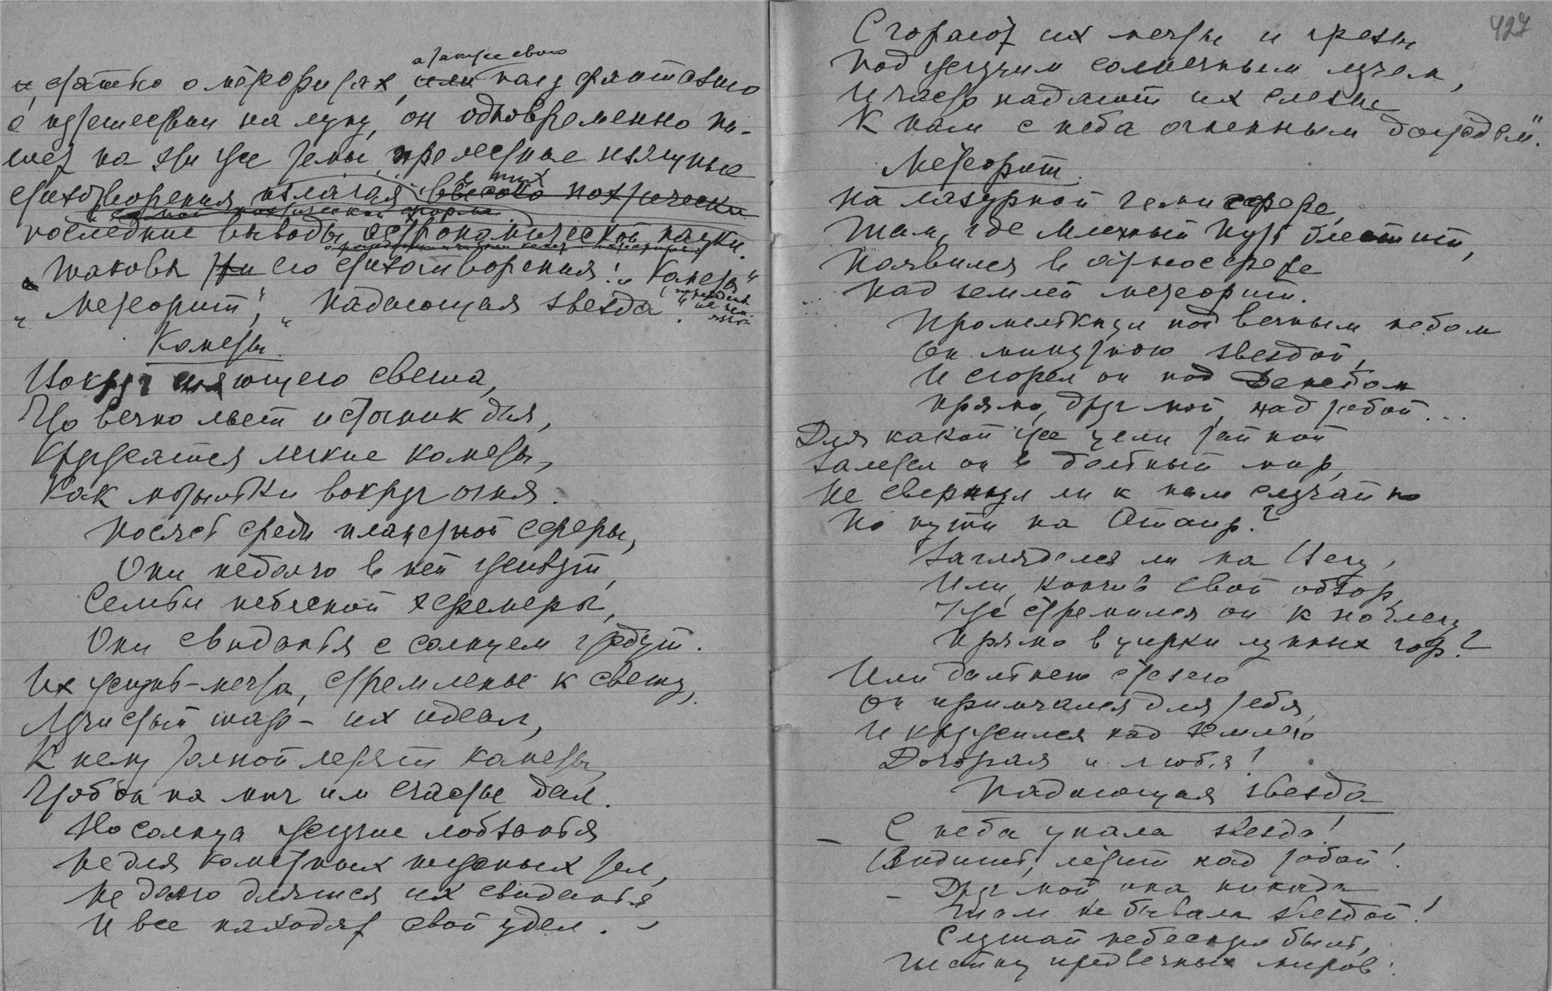 и, статью о метеоритах, или научную фантазию
о путешествии на луну, он одновременно пи-
шет на эти же темы прелестные изящные
стихотворения, излагая в них высоко поэтически
последние выводы астрономической науки.
Таковы его стихотворения: „Кометы“
„Метеорит“, „Падающая звезда“.
Кометы.
Вокруг сияющего света,
Что вечно льет источник дня,
Кружатся легкие кометы,
Как мотыльки вокруг огня.
Носясь среди планетной сферы,
Они недолго в ней живут,
Семьи небесной эфемеры,
Они свиданья с солнцем ждут.
Их жизнь-мечта, стремленье к свету,
Лучистый шар – их идеал,
К нему толпой летят кометы,
Чтоб он на миг им счастье дал.
Но солнца жгучие лобзанья
Не для кометных нежных тел,
Не долго длятся их свиданья
И все находят свой удел.
427
Сгорают их мечты и грезы
Под жгучим солнечным лучем,
И часто падают их слезы
К нам с неба огненным дождем“.
Метеорит.
На лазурной гемисфере,
Там, где Млечный Путь блестит,
Появился в атмосфере
Над землей метеорит.
Промелькнул под вечным небом
Он минутною звездой,
И сгорел он под Денебом
Прямо, друг мой, над тобой...
Для какой же цели тайной
Залетел он в дольный мир,
Не свернул ли к нам случайно
По пути на Альтаир?
Загляделся ли на Вегу,
Или, кончив свой обзор,
Уж стремился он к ночлегу
Прямо в цирки лунных гор?
Или дальнею стезею
Он примчался для тебя,
И кружился над землею
Догорая и любя!
Падающая звезда
– С неба упала звезда!
Видишь, летит над тобой!
– Друг мой она никогда
Там не бывала звездой!
Слушай небесную быль,
Тайну предвечных миров: